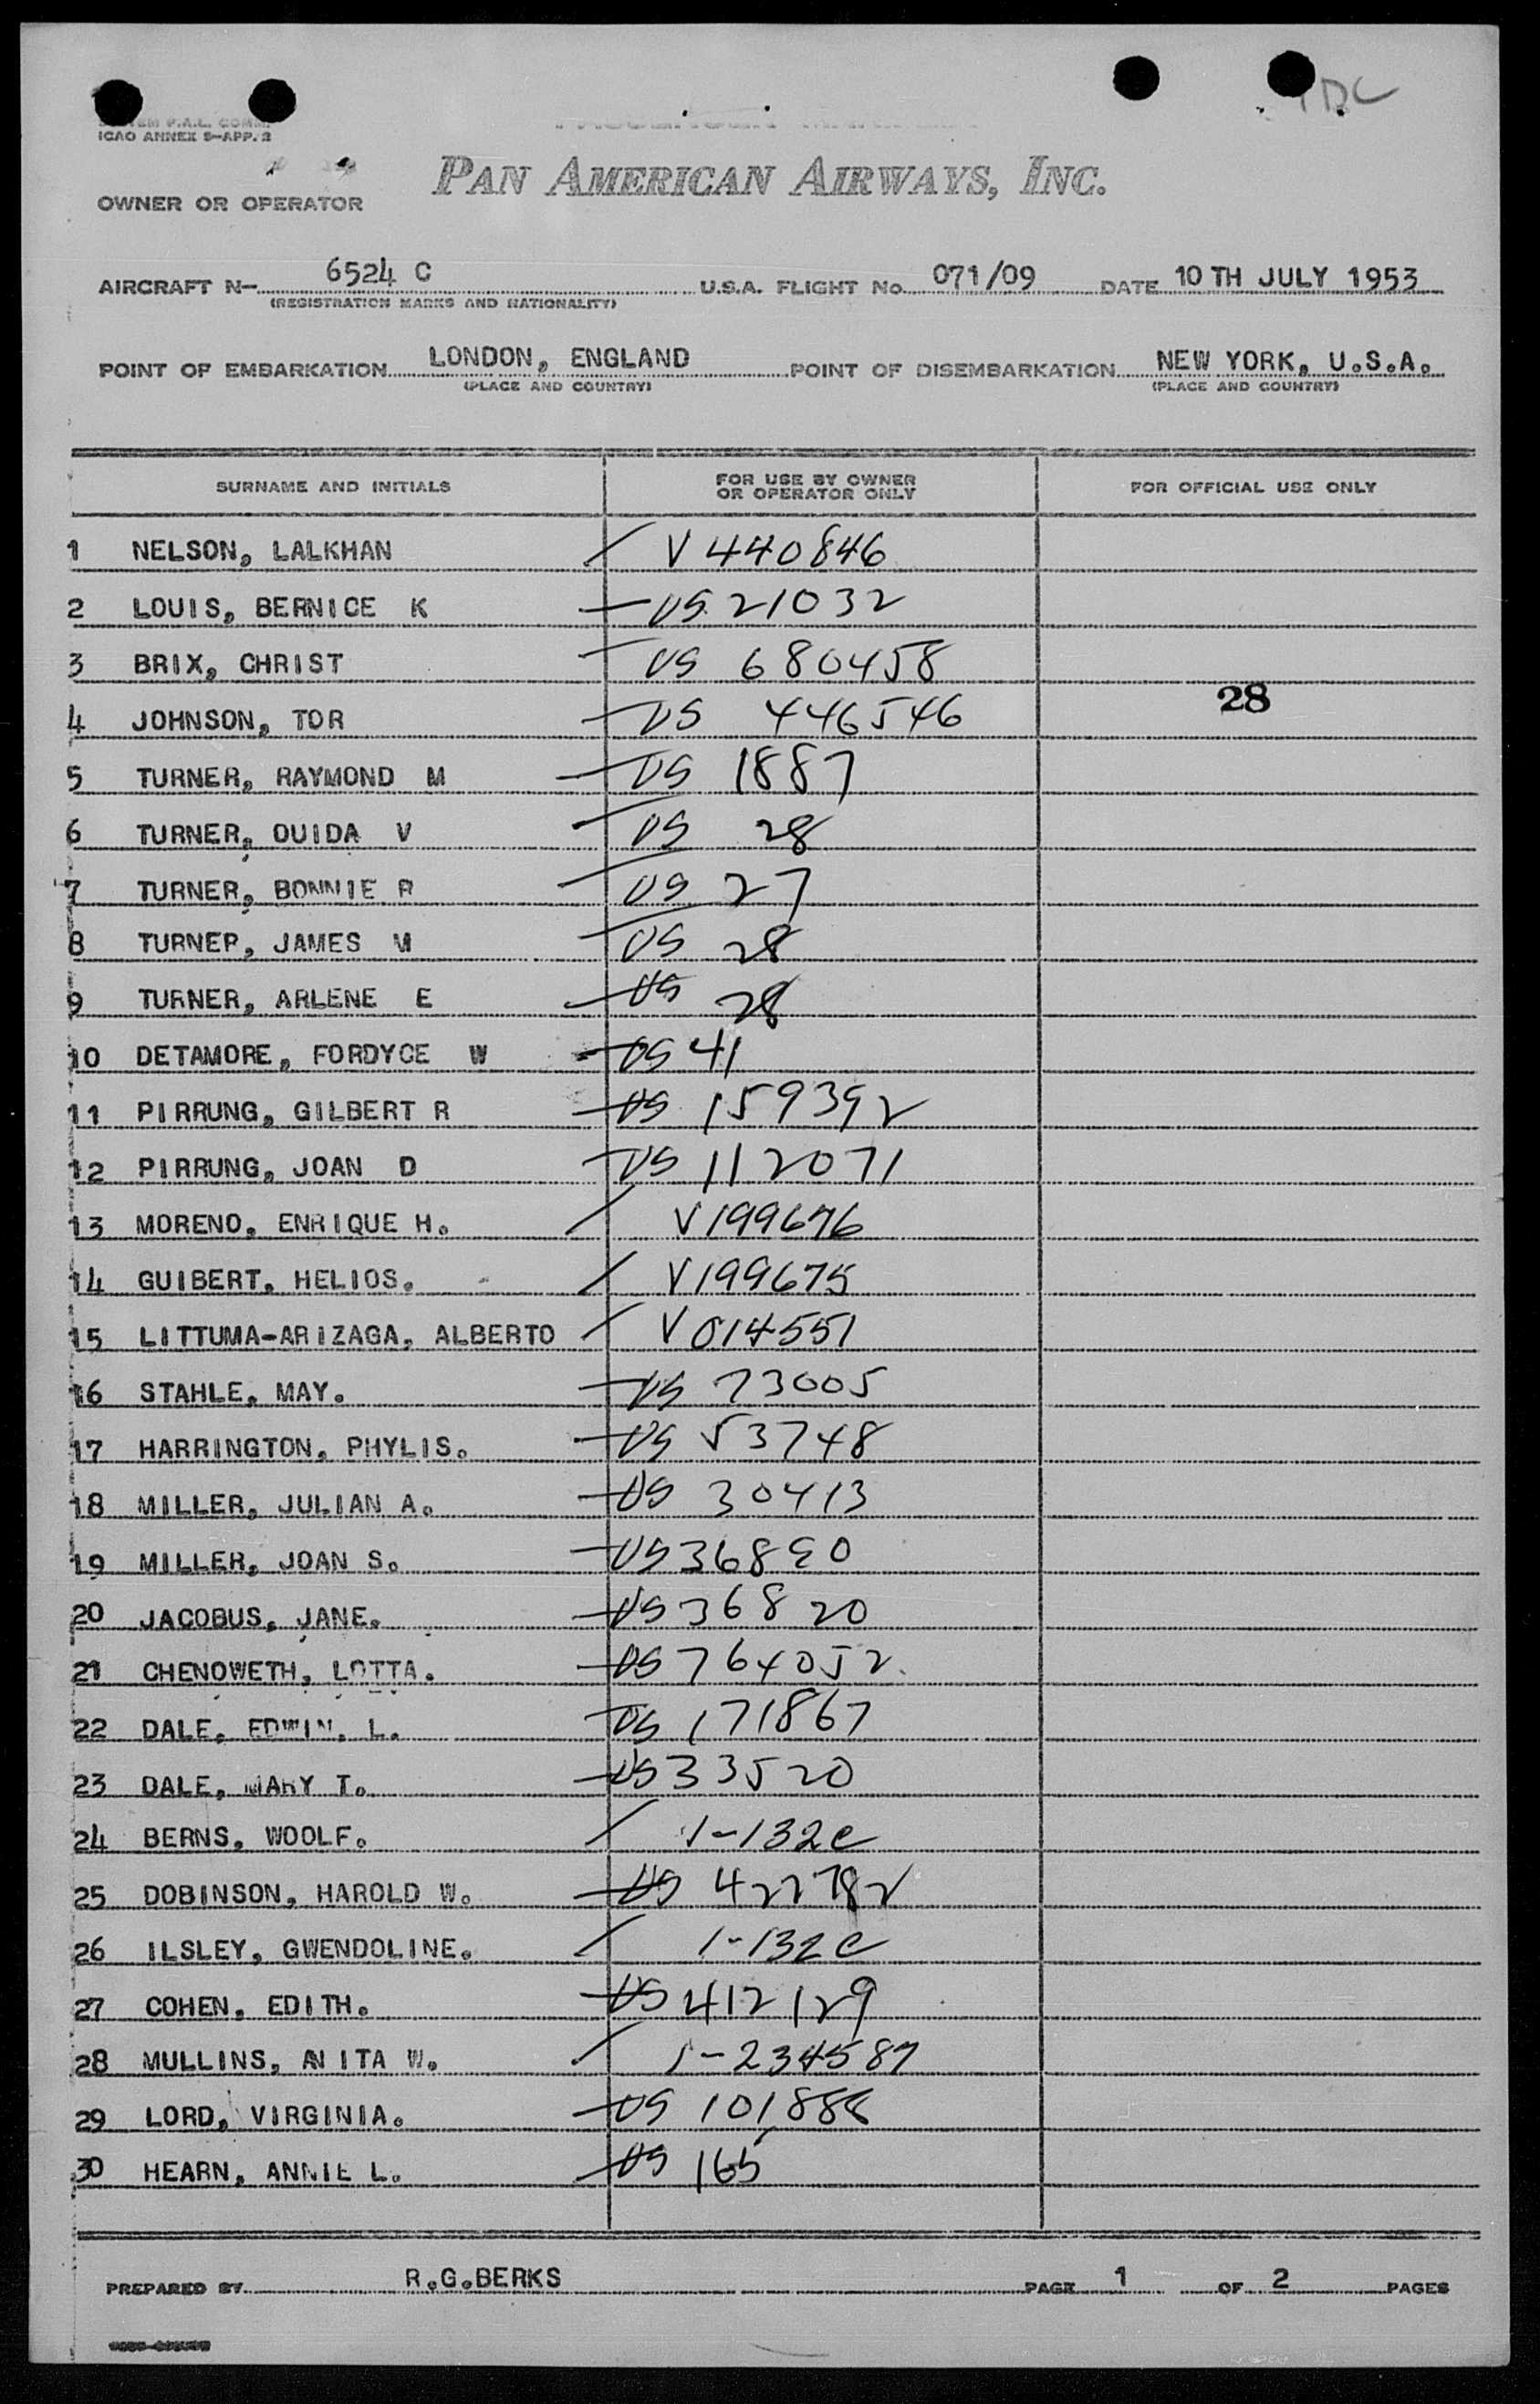 ICAO ANNEX 9-APP. 2
PAN AMERICAN AIRWAYS, INC.
OWNER OR OPERATOR
AIRCRAFT N- 6524 C U.S.A. FLIGHT No. 071/09 DATE 10 TH JULY 1953
(REGISTRATION MARKS AND NATIONALITY)
POINT OF EMBARKATION LONDON, ENGLAND POINT OF DISEMBARKATION NEW YORK, U.S.A.
(PLACE AND COUNTRY) (PLACE AND COUNTRY)
SURNAME AND INITIALS FOR USE BY OWNER OR OPERATOR ONLY FOR OFFICIAL USE ONLY
1 NELSON, LALKHAN V 440846
2 LOUIS, BERNICE K US 21032
3 BRIX, CHRIST US 680458
28
4 JOHNSON, TOR US 446546
5 TURNER, RAYMOND M US 1887
6 TURNER, OUIDA V US 28
7 TURNER, BONNIE R US 27
8 TURNER, JAMES M US 28
9 TURNER, ARLENE E US 28
10 DETAMORE, FORDYCE W US 41
11 PIRRUNG, GILBERT R US 159392
12 PIRRUNG, JOAN D US 112071
13 MORENO, ENRIQUE H. V199676
14 GUIBERT, HELIOS. V199675
15 LITTUMA-ARIZAGA, ALBERTO V 014551
16 STAHLE, MAY. US 73005
17 HARRINGTON, PHYLIS. US 53748
18 MILLER, JULIAN A. US 30413
19 MILLER, JOAN S. US 36880
20 JACOBUS, JANE. US 36820
21 CHENOWETH, LOTTA. US 764052
22 DALE, EDWIN, L. US 171867
23 DALE, MARY T. US 33520
24 BERNS, WOOLF. 1-132C
25 DOBINSON, HAROLD W. US 422782
26 ILSLEY, GWENDOLINE. 1-132C
27 COHEN, EDITH. US 412129
28 MULLINS, ANITA W. 1-234587
29 LORD, VIRGINIA. US 101888
30 HEARN, ANNIE L. US 165
PREPARED BY R.G.BERKS PAGE 1 OF 2 PAGES